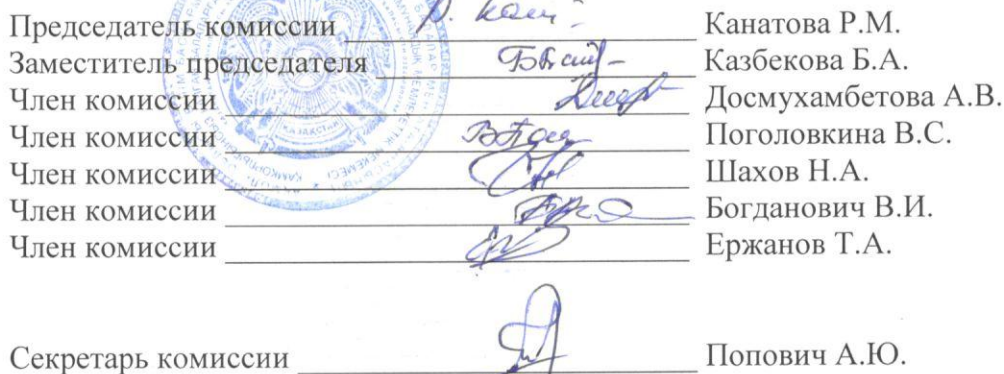 Председатель комиссии Канатова Р.М.
Заместитель председателя Казбекова Б.А.
Член комиссии Досмухамбетова А.В.
Член комиссии Поголовкина В.С.
Член комиссии Шахов Н.А.
Член комиссии Богданович В.И.
Член комиссии Ержанов Т.А.
Секретарь комиссии Попович А.Ю.